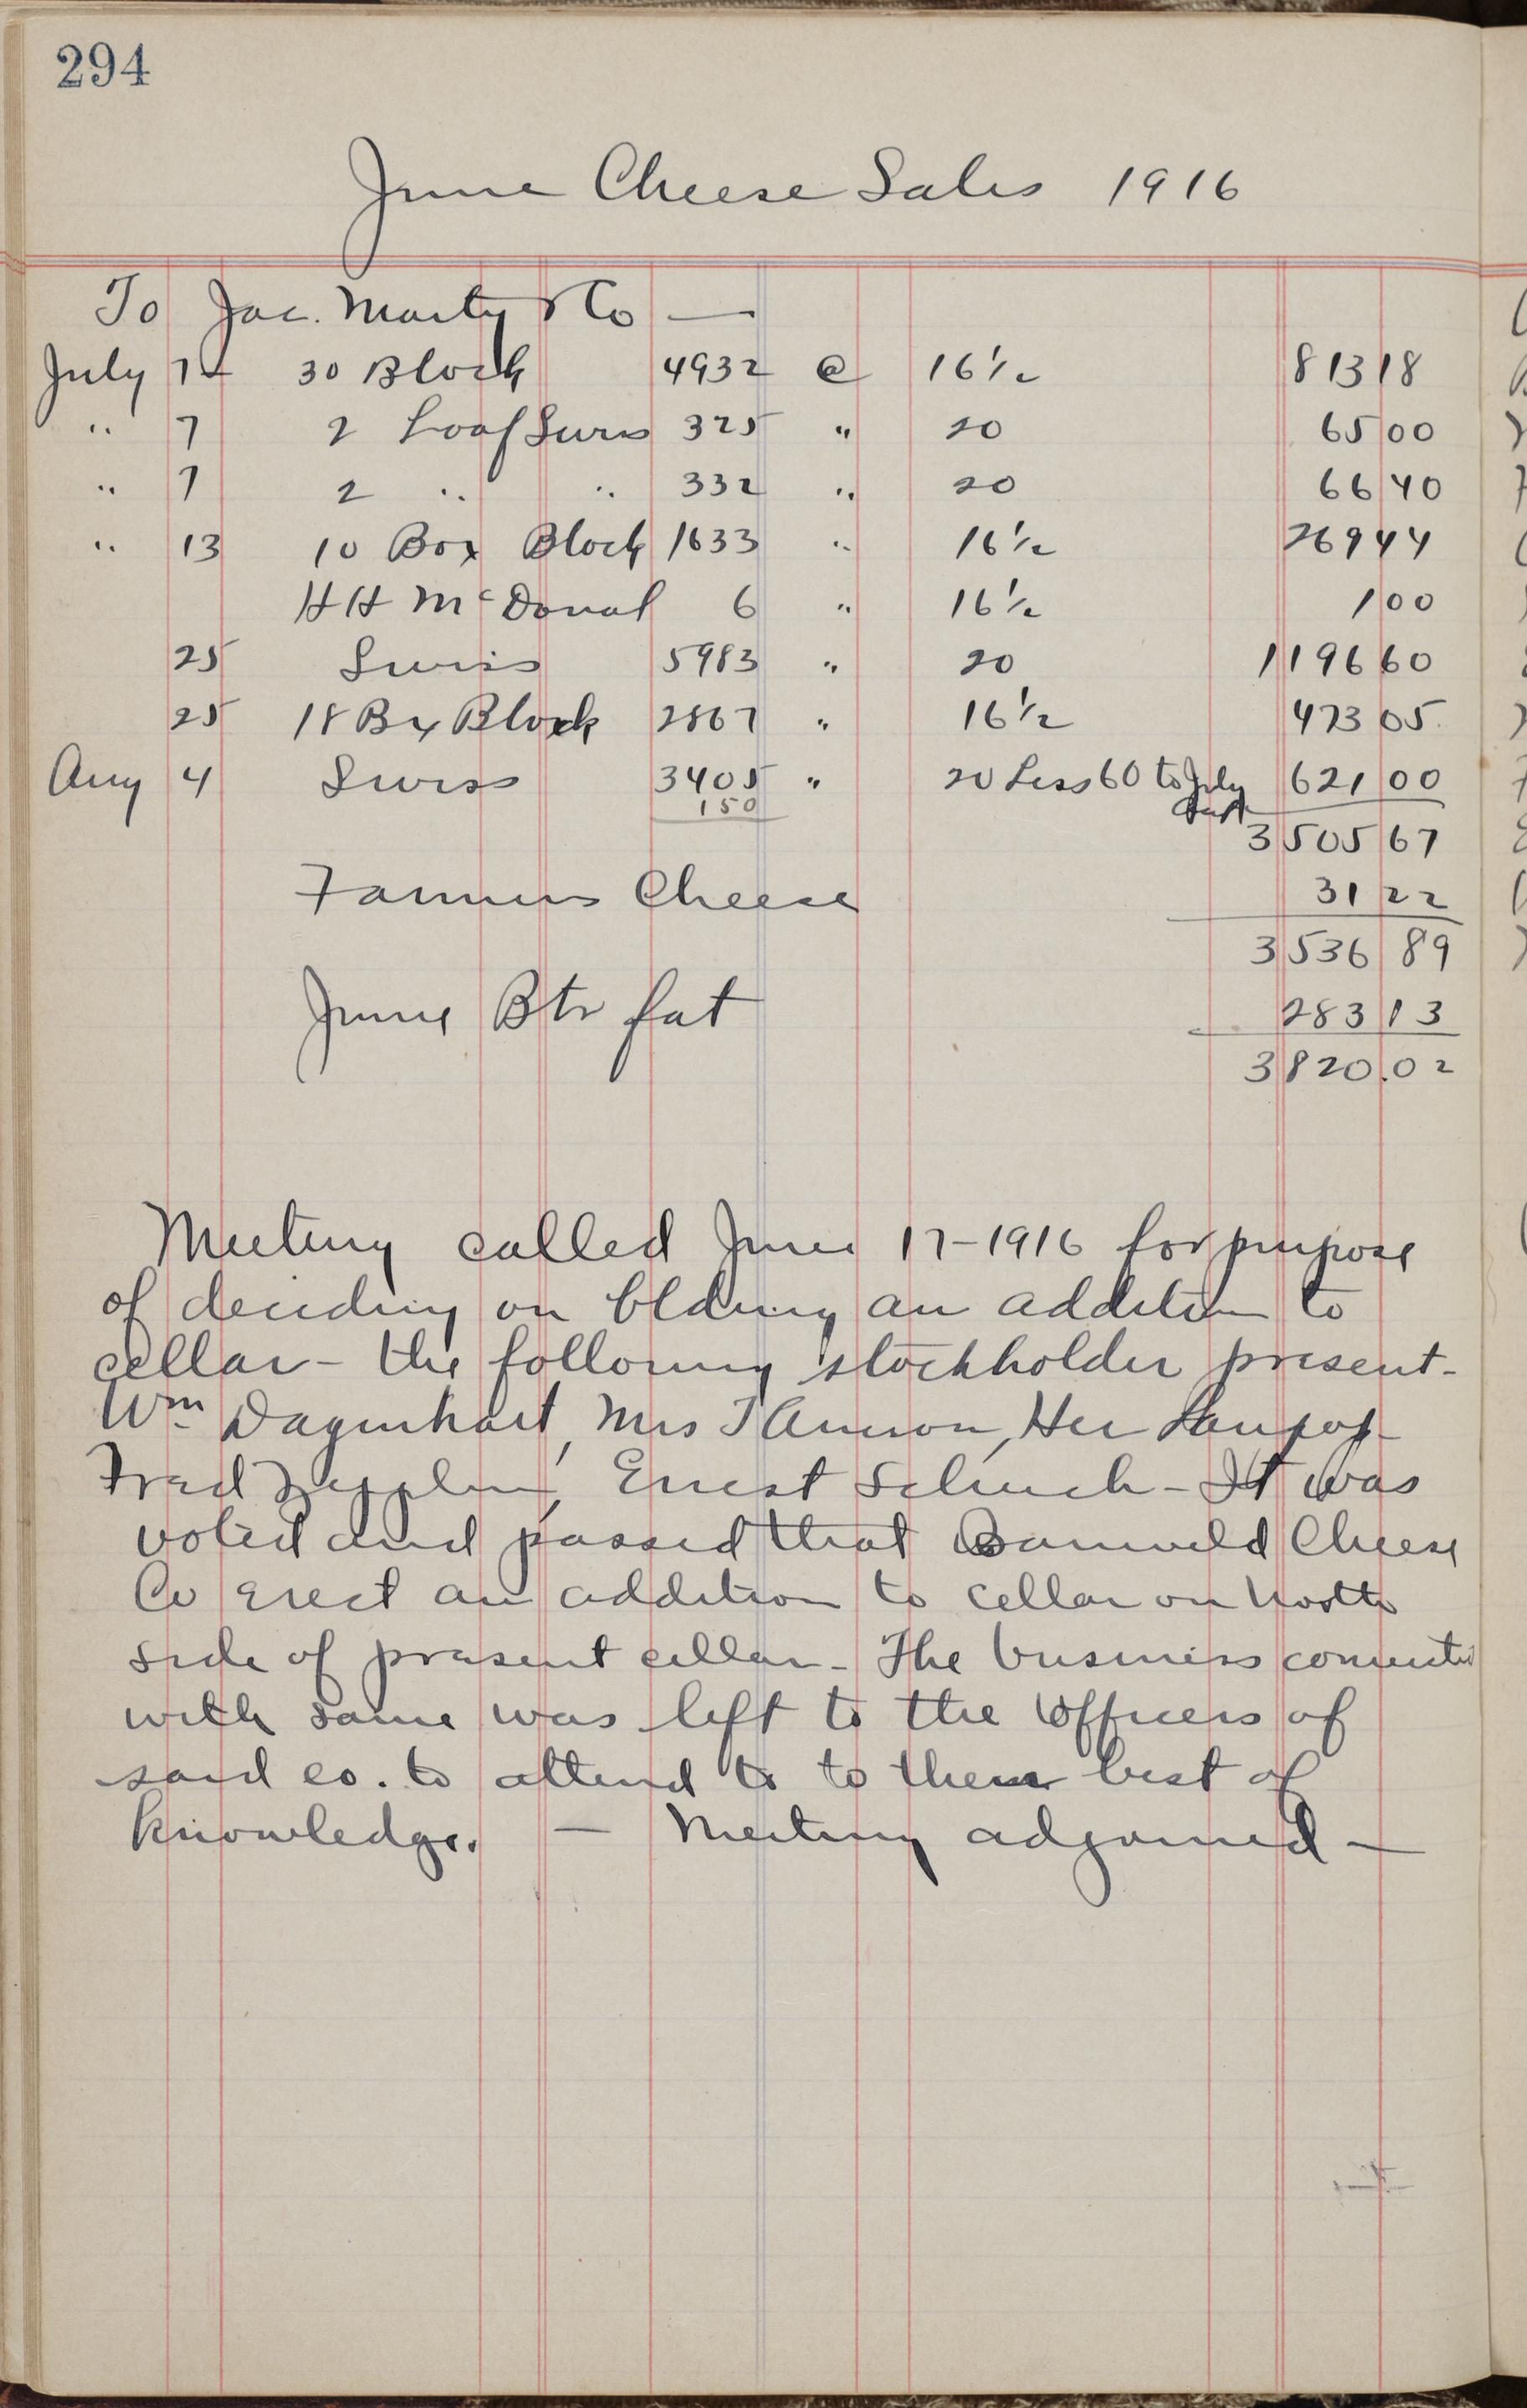 294
June Cheese Sales 1916
To Jac. Marty & Co —
July 7 30 Block 4932 @ 16 1/2 813 18
" 7 2 Loaf Swiss 325 " 20 65 00
" 7 2 " " 332 " 20 66 40
" 13 10 Box Block 1633 " 16 1/2 269 44
H H McDonal 6 " 16 1/2 1 00
25 Swiss 5983 " 20 1196 60
25 18 Bx Block 2867 " 16 1/2 473 05
Aug 4 Swiss 3405 " 20 Less 60 to July 621 00
150
3505 67
Farmers Cheese 31 22
3536 89
June Btr fat 283 13
3820.02
Meeting called June 17-1916 for purpose
of deciding on bldning an addition to
cellar - the following stockholder present-
Wm Dagenhart, Mrs J Ameson, Her
Fred Zepplin, Ernest Schuch - It was
voted and passed that Barnveld Cheese
Co erect an addition to cellar on North
side of present cellar - The business connected
with same was left to the officers of
said co. to attend to to their best of
knowledge. — Meeting adjourned —